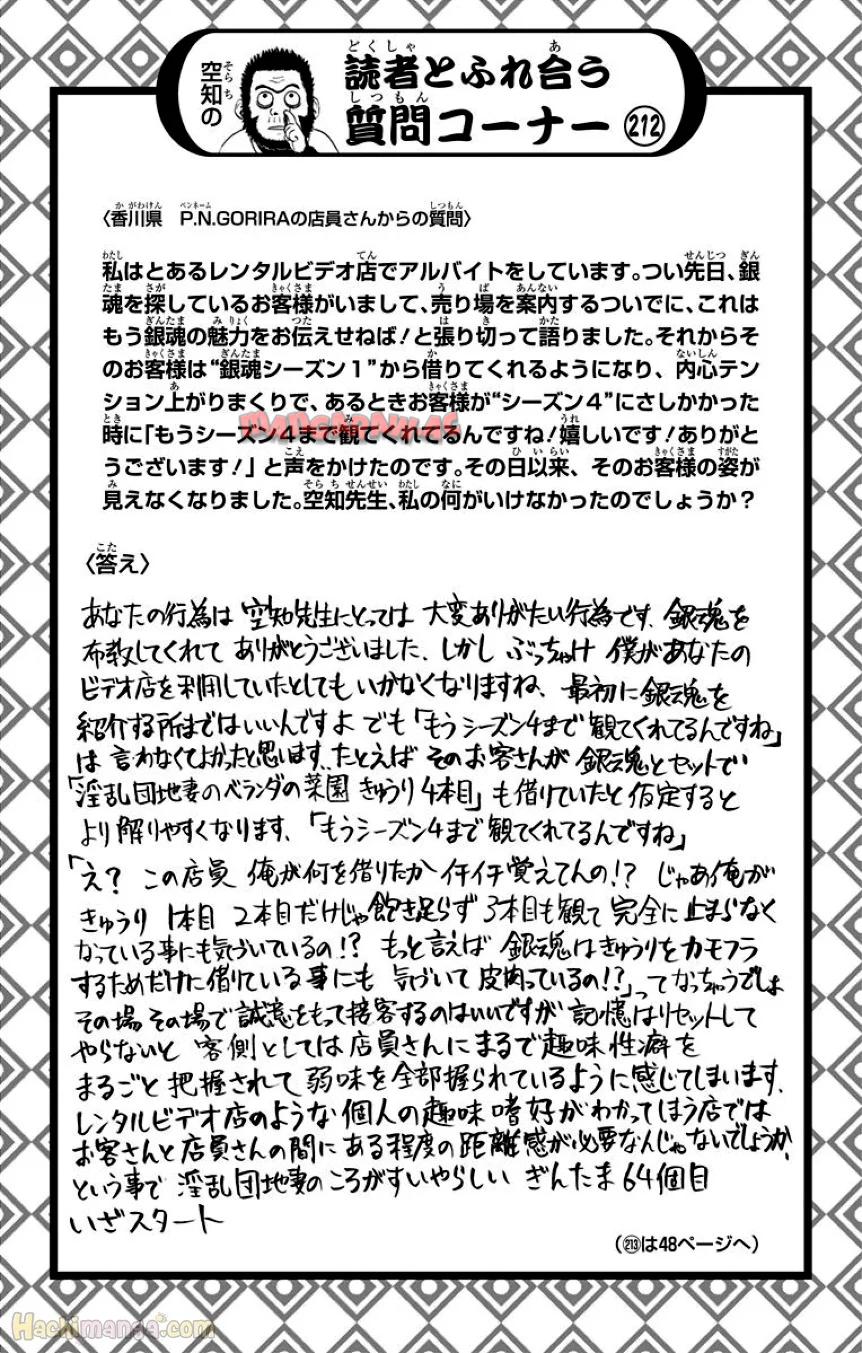 空知の
読者とふれ合う
質問コーナー 212
〈香川県 P.N.GORIRAの店員さんからの質問〉
私はとあるレンタルビデオ店でアルバイトをしています。つい先日、銀
魂を探しているお客様がいまして、売り場を案内するついでに、これは
もう銀魂の魅力をお伝えせねば！と張り切って語りました。それからそ
のお客様は“銀魂シーズン１”から借りてくれるようになり、内心テン
ション上がりまくりで、あるときお客様が“シーズン４”にさしかかった
時に「もうシーズン４まで観てくれてるんですね！嬉しいです！ありがと
うございます！」と声をかけたのです。その日以来、そのお客様の姿が
見えなくなりました。空知先生、私の何がいけなかったのでしょうか？
〈答え〉
あなたの行為は 空知先生にとっては 大変ありがたい行為です、銀魂を
布教してくれて ありがとうございました、しかし ぶっちゃけ 僕があなたの
ビデオ店を利用していたとしてもいかなくなりますね、最初に銀魂を
紹介する所まではいいんですよ でも「もうシーズン4まで観てくれてるんですね」
は 言わなくてよかったと思います、たとえば そのお客さんが 銀魂とセットで
「淫乱団地妻のベランダの菜園 きゅうり4本目」も借りていたと仮定すると
より解りやすくなります、「もうシーズン4まで観てくれてるんですね」
「え？ この店員 俺が何を借りたか イチイチ覚えてんの!? じゃあ俺が
きゅうり 1本目 2本目だけじゃ飽き足らず 3本目も観て 完全に止まらなく
なっている事にも気づいているの!? もっと言えば 銀魂はきゅうりをカモフラ
するためだけに借りている事にも 気づいて皮肉っているの!?」ってなっちゃうでしょ
その場その場で誠意をもって接客するのはいいですが 記憶はリセットして
やらないと 客側としては店員さんにまるで趣味性癖を
まるごと把握されて 弱味を全部握られているように感じてしまいます、
レンタルビデオ店のような個人の趣味嗜好がわかってしまう店では
お客さんと店員さんの間にある程度の距離感が必要なんじゃないでしょうか、
という事で 淫乱団地妻のころがすいやらしい ぎんたま64個目
いざスタート
（213は48ページへ）
Hachimanga.com